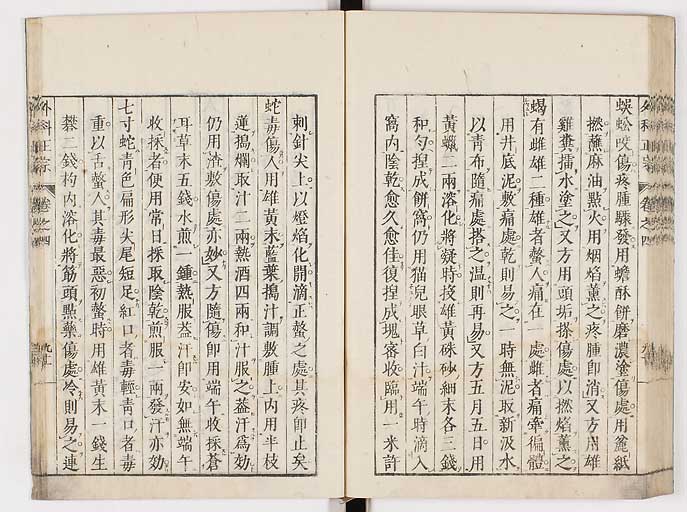 蜈蚣咬傷疼腫驟發用蟾酥餅磨濃塗傷處用麄紙
撚蘸麻油㸃火用烟焰薰之疼腫卽消又方用雄
雞糞擂水塗之又方用頭垢搽傷處以撚焰薰之
蝎有雌雄二種雄者螫人痛在一處雌者痛牽徧體
用井底泥敷痛處乾則易之一時無泥取新汲水
以青布隨痛處搭之温則再易又方五月五日用
黃蠟二兩溶化將凝時投雄黃硃砂細末各三錢
和勻揑成餅窩仍用猫兒眼草白汁端午時滴入
窩內陰乾愈久愈佳復揑成塊密收臨用一米許
刺針尖上以燈焰化開滴正螫之處其疼卽止矣
蛇毒傷人用雄黃末藍葉搗汁調敷腫上內用半枝
蓮搗爛取汁二兩熱酒四兩和汁服之葢汗爲効
仍用渣敷傷處亦妙又方隨傷卽用端午收採蒼
耳草末五錢水煎一鍾熱服葢汗卽安如無端午
收採者便用常日採取陰乾煎服一兩發汗亦効
七寸蛇青色扁形尖尾短足紅口者毒輕青口者毒
重以舌螫人其毒最惡初螫時用雄黃末一錢生
礬三錢杓內溶化將筋頭㸃藥傷處冷則易之連
外科正宗
卷之四
外科正宗
卷之四